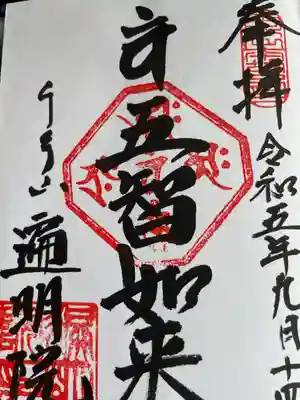 奉拝
令和五年九月十四
五智如来
千手山
遍明院